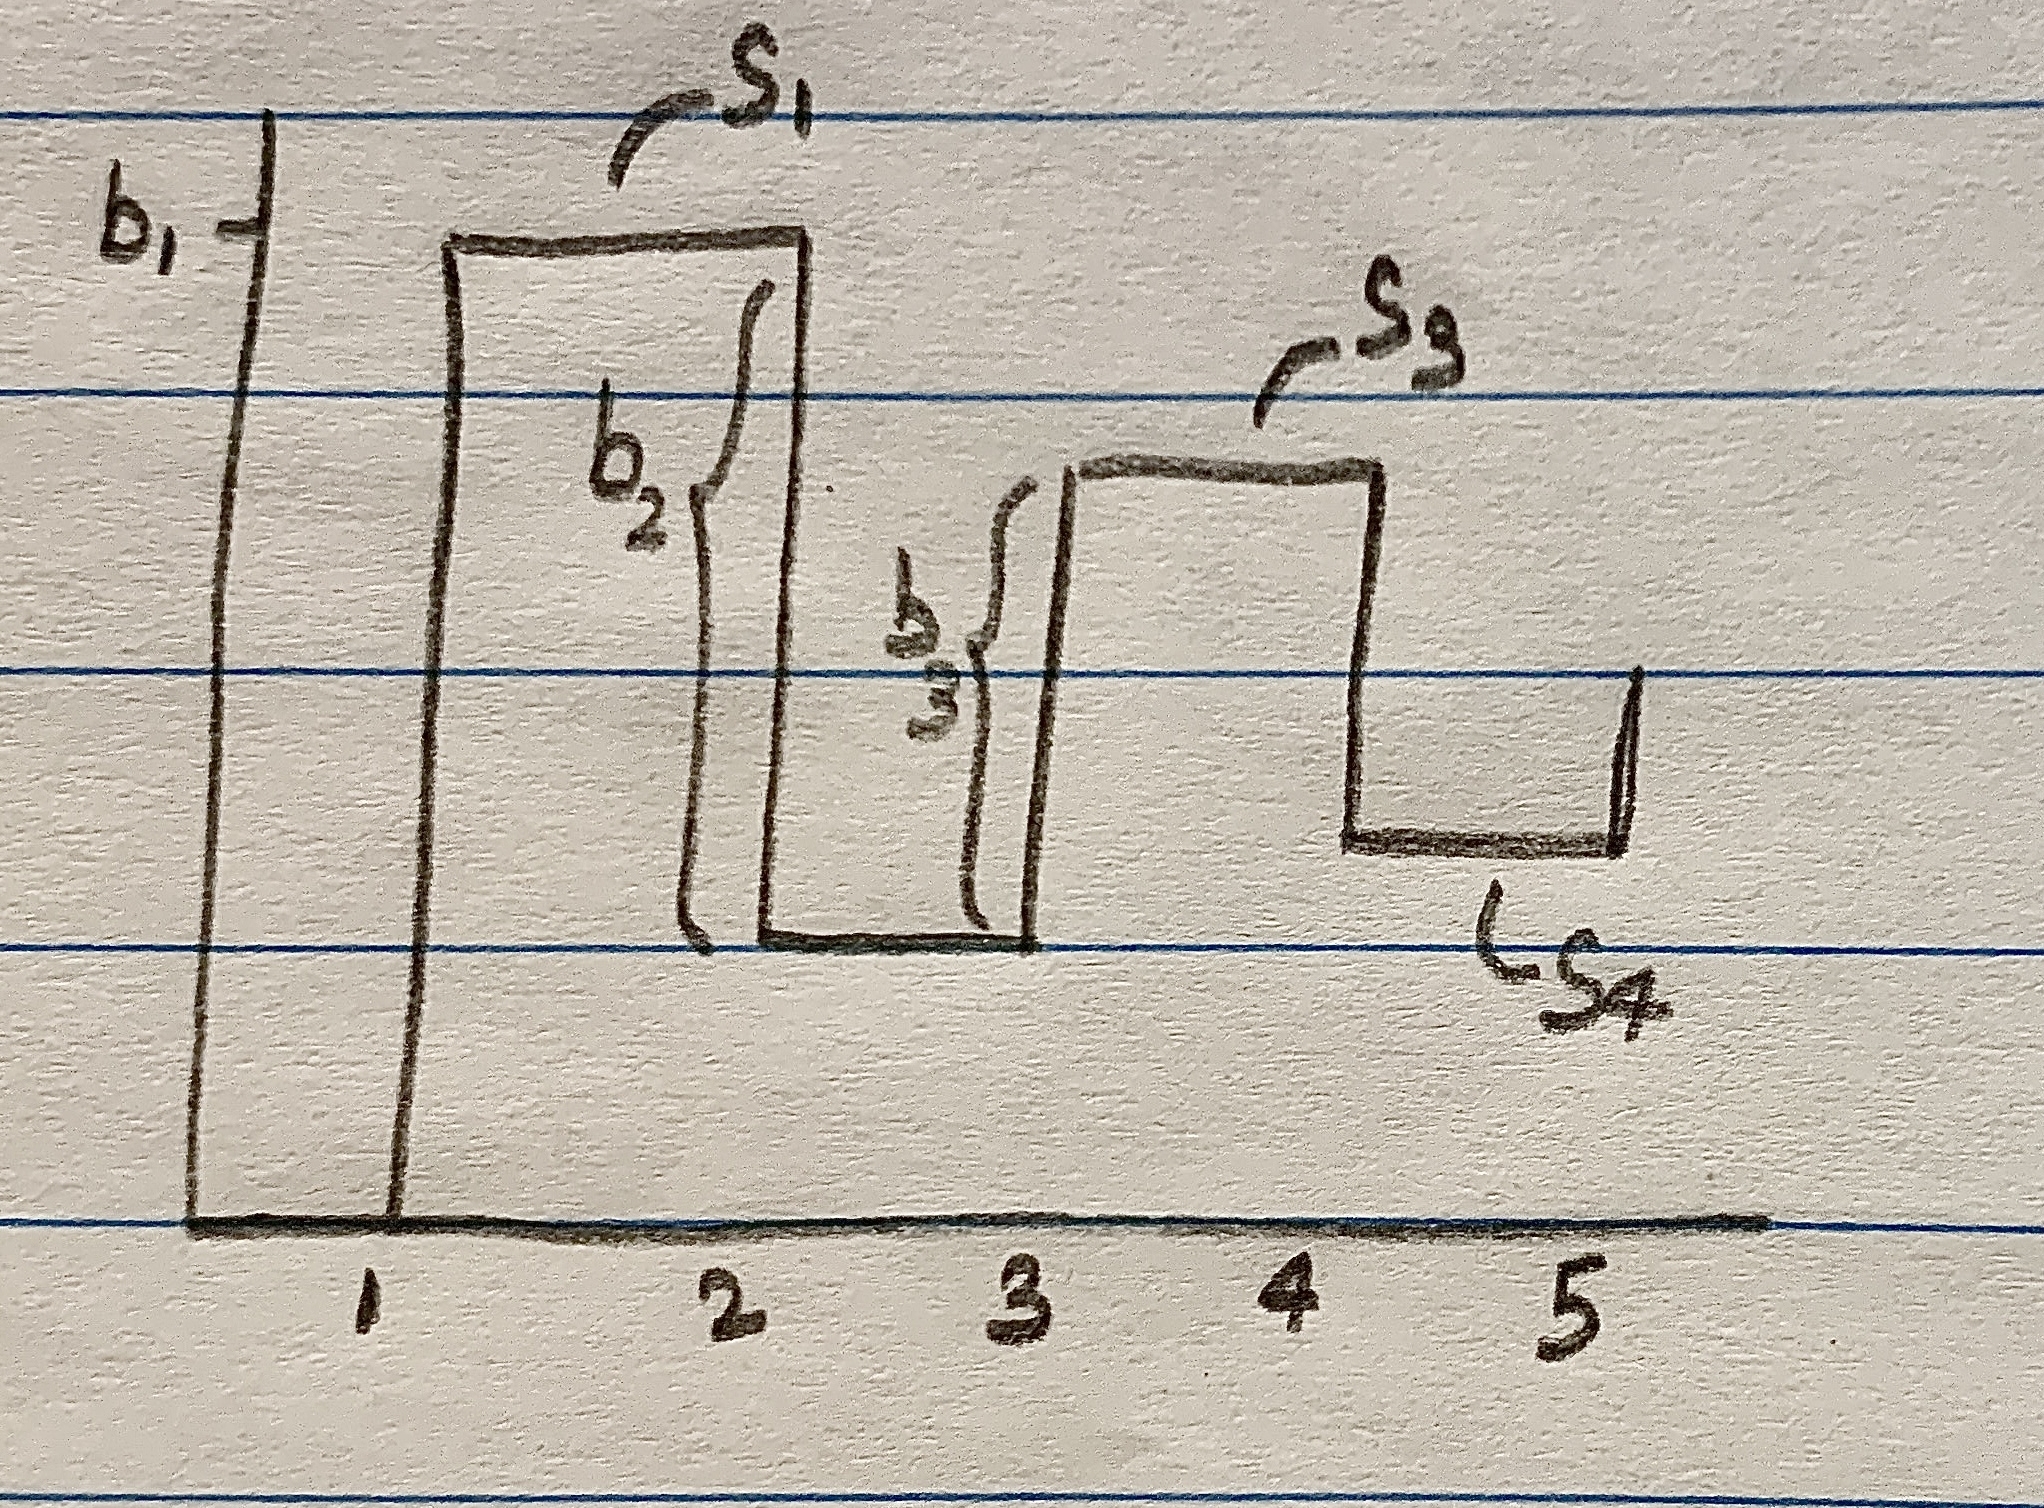 S₁
b₁
S₃
b₂
b₃
S₄
1 2 3 4 5